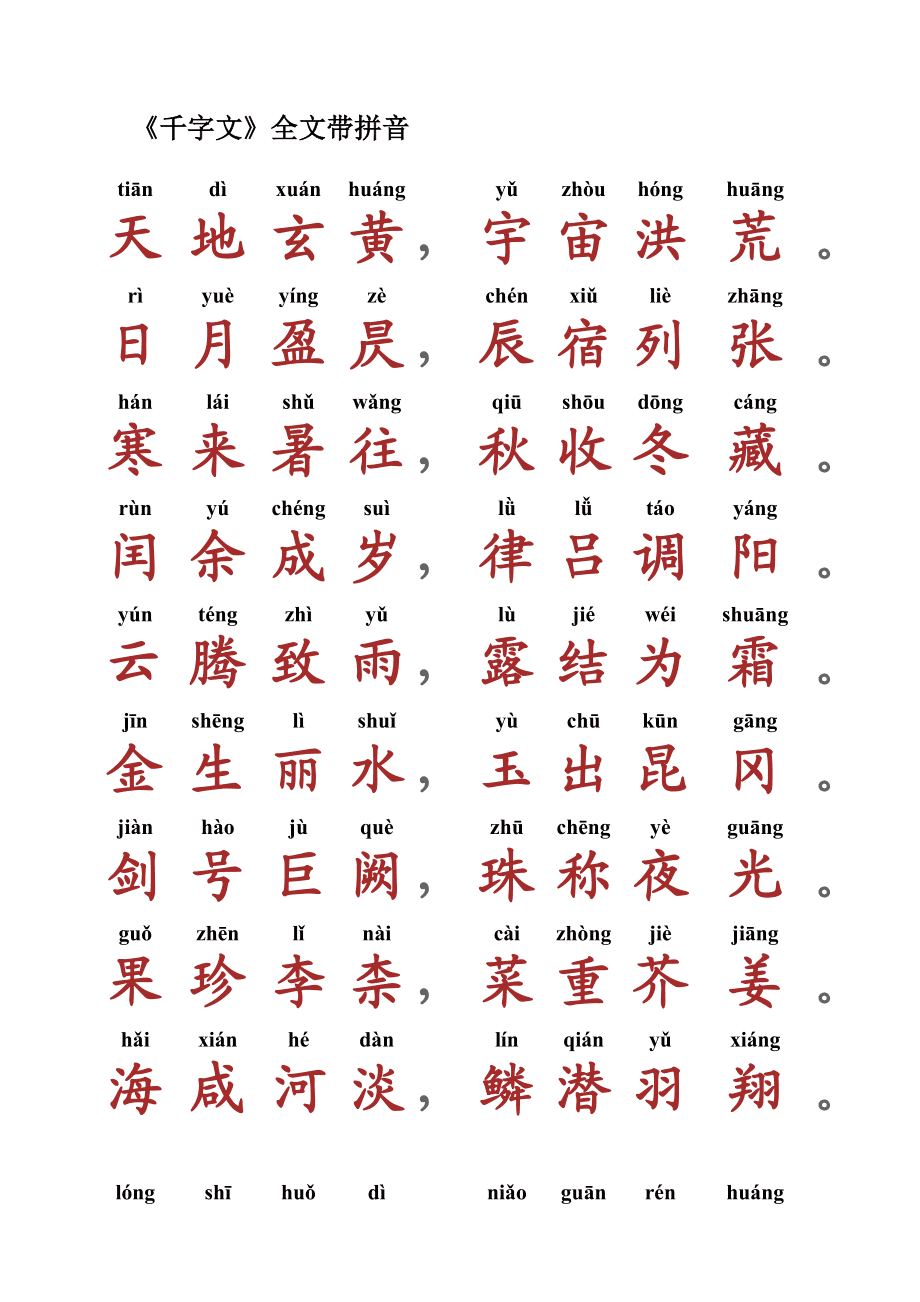 《千字文》全文带拼音
tiān dì xuán huáng yǔ zhòu hóng huāng
天地玄黄，宇宙洪荒。
rì yuè yíng zè chén xiǔ liè zhāng
日月盈昃，辰宿列张。
hán lái shǔ wǎng qiū shōu dōng cáng
寒来暑往，秋收冬藏。
rùn yú chéng suì lǜ lǚ táo yáng
闰余成岁，律吕调阳。
yún téng zhì yǔ lù jié wéi shuāng
云腾致雨，露结为霜。
jīn shēng lì shuǐ yù chū kūn gāng
金生丽水，玉出昆冈。
jiàn hào jù què zhū chēng yè guāng
剑号巨阙，珠称夜光。
guǒ zhēn lǐ nài cài zhòng jiè jiāng
果珍李柰，菜重芥姜。
hǎi xián hé dàn lín qián yǔ xiáng
海咸河淡，鳞潜羽翔。
lóng shī huǒ dì niǎo guān rén huáng